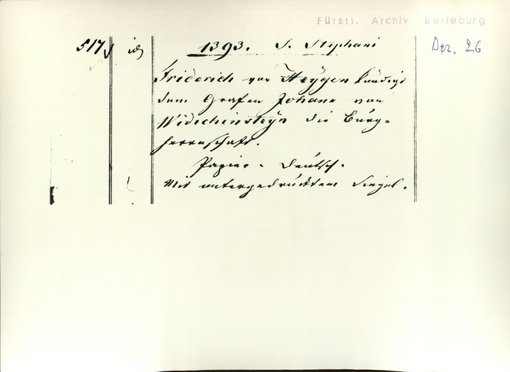 Fürstl. Archiv Berleburg
517, 1393. S. Stephani Dez. 26
Friderich von Heygen kündigt
dem Grafen Johann von
Widechinsteyn die Burg=
herrnschaft.
Papier. Deutsch.
Mit untergedrücktem Siegel.